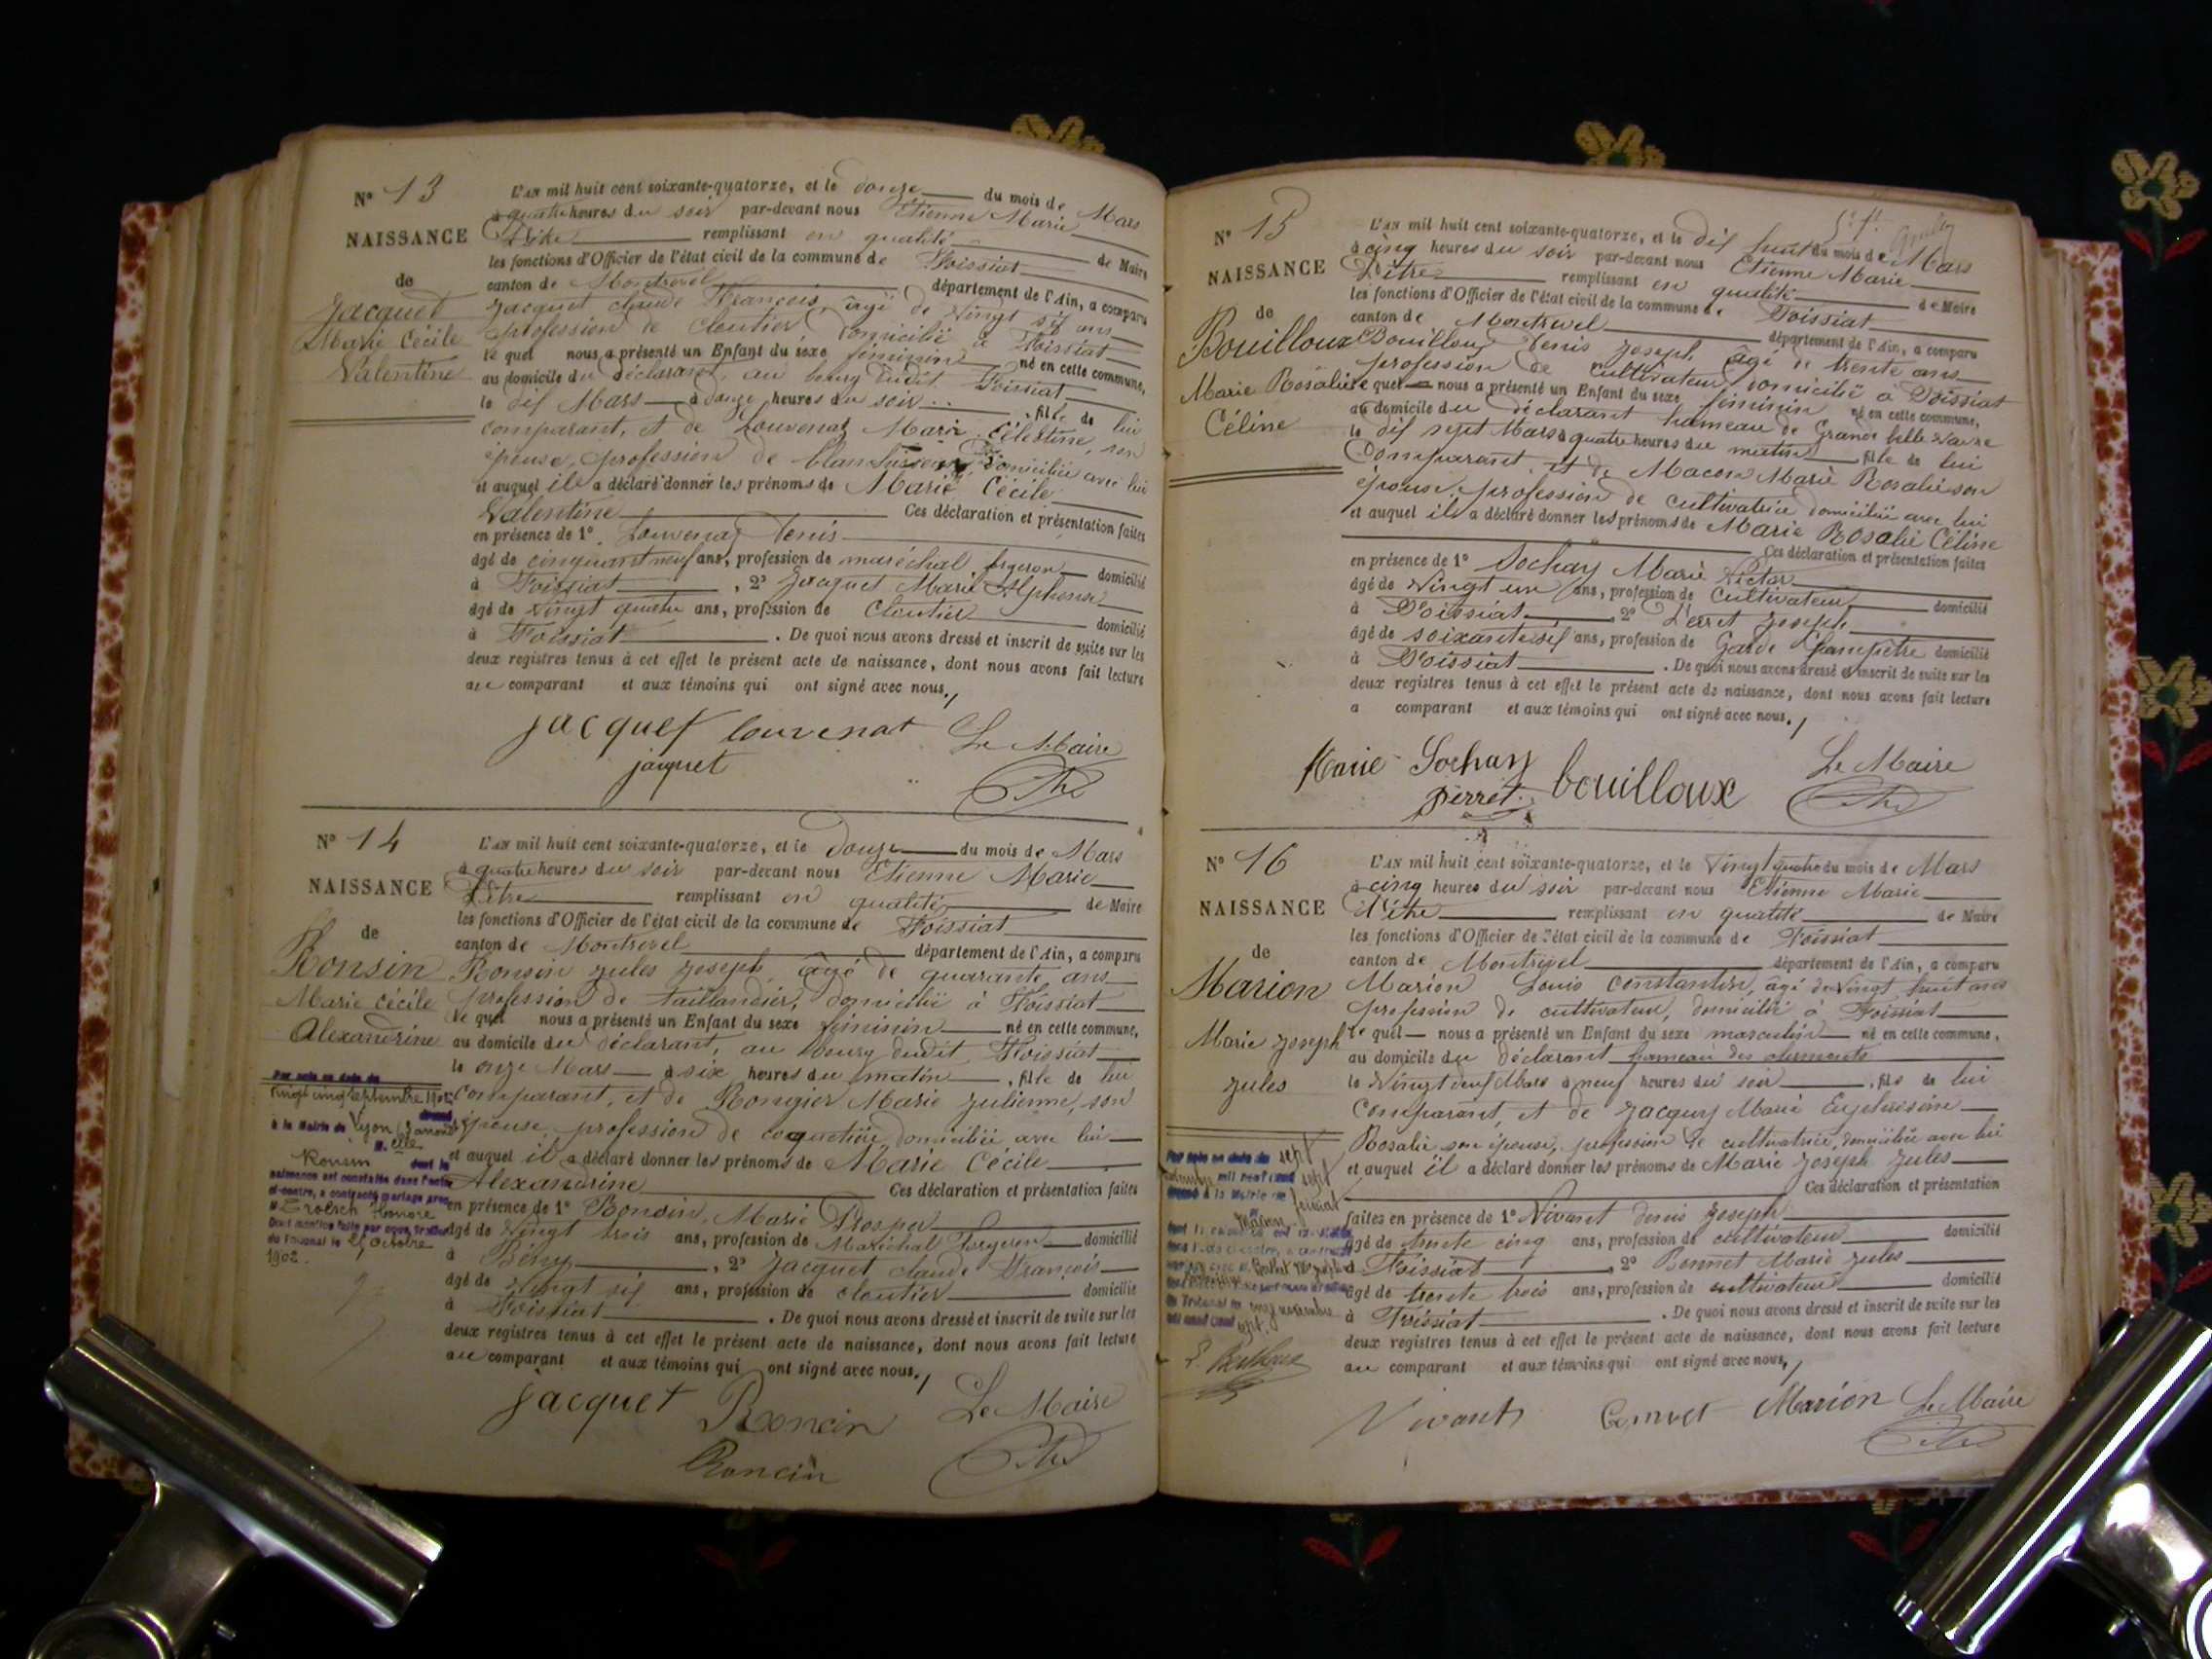 N° 13
NAISSANCE
de
Jacquet
Marie Cécile
Valentine
L'AN mil huit cent soixante-quatorze, et le douze du mois de Mars
à quatre heures du soir par-devant nous Etienne Marie
remplissant en qualité de Maire
les fonctions d'Officier de l'état civil de la commune de Foissiat
canton de Montrevel département de l'Ain, a comparu
Jacquet claude François, âgé de vingt six ans
profession de cloutier domicilié à Foissiat
le quel nous a présenté un Enfant du sexe féminin né en cette commune,
au domicile du déclarant, au bourg dudit Foissiat
le dix Mars à douze heures du soir , fille de lui
comparant, et de Louvenat Marie Célestine, son
épouse, profession de domiciliée avec lui
et auquel il a déclaré donner les prénoms de Marie Cécile
Valentine Ces déclaration et présentation faites
en présence de 1° Louvenat Denis
âgé de cinquante neuf ans, profession de maréchal forgeron domicilié
à Foissiat , 2° Jacquet Marie Alphonse
âgé de vingt quatre ans, profession de cloutier domicilié
à Foissiat . De quoi nous avons dressé et inscrit de suite sur les
deux registres tenus à cet effet le présent acte de naissance, dont nous avons fait lecture
au comparant et aux témoins qui ont signé avec nous.
jacquet louvenat Le Maire
jacquet
N° 14
NAISSANCE
de
Ronsin
Marie Cécile
Alexandrine
L'AN mil huit cent soixante-quatorze, et le douze du mois de Mars
à quatre heures du soir par-devant nous Etienne Marie
remplissant en qualité de Maire
les fonctions d'Officier de l'état civil de la commune de Foissiat
canton de Montrevel département de l'Ain, a comparu
Ronsin Jules Joseph, âgé de quarante ans
profession de taillandier, domicilié à Foissiat
le quel nous a présenté un Enfant du sexe féminin né en cette commune,
au domicile du déclarant, au bourg dudit Foissiat
le onze Mars à six heures du matin , fille de lui
comparant, et de Rongier Marie Julienne, son
épouse, profession de coquetière domiciliée avec lui
et auquel il a déclaré donner les prénoms de Marie Cécile
Alexandrine Ces déclaration et présentation faites
en présence de 1° Ronsin, Marie Prosper
âgé de vingt trois ans, profession de Maréchal forgeron domicilié
à Bény , 2° Jacquet claude François
âgé de vingt six ans, profession de cloutier domicilié
à Foissiat . De quoi nous avons dressé et inscrit de suite sur les
deux registres tenus à cet effet le présent acte de naissance, dont nous avons fait lecture
au comparant et aux témoins qui ont signé avec nous.
Par acte en date du
vingt cinq septembre 1902
dressé
à la Mairie de Lyon
M. elle
Ronsin dont la
naissance est constatée dans l'acte
ci-contre, a contracté mariage avec
M Honoré
Dont mention faite par nous greffier
du Tribunal le octobre
1902.
jacquet Roncin Le Maire
Roncin
N° 15
NAISSANCE
de
Bouilloux
Marie Rosalie
Céline
L'AN mil huit cent soixante-quatorze, et le dix huit du mois de Mars
à cinq heures du soir par-devant nous Etienne Marie
remplissant en qualité de Maire
les fonctions d'Officier de l'état civil de la commune de Foissiat
canton de Montrevel département de l'Ain, a comparu
Bouilloux Denis Joseph âgé de trente ans
profession de cultivateur, domicilié à Foissiat
le quel nous a présenté un Enfant du sexe féminin né en cette commune,
au domicile du déclarant hameau de Grande
le dix sept Mars à quatre heures du matin fille de lui
Comparant, et de Macon Marie Rosalie son
épouse, profession de cultivatrice domiciliée avec lui
et auquel il a déclaré donner les prénoms de Marie Rosalie Céline
Ces déclaration et présentation faites
en présence de 1° Sochay Marie Victor
âgé de vingt un ans, profession de cultivateur domicilié
à Foissiat 2° Perret Joseph
âgé de soixante six ans, profession de Garde Champêtre domicilié
à Foissiat . De quoi nous avons dressé et inscrit de suite sur les
deux registres tenus à cet effet le présent acte de naissance, dont nous avons fait lecture
a comparant et aux témoins qui ont signé avec nous.
Marie Sochay bouilloux Le Maire
perret
N° 16
NAISSANCE
de
Marion
Marie Joseph
Jules
L'AN mil huit cent soixante-quatorze, et le vingt quatre du mois de Mars
à cinq heures du soir par-devant nous Etienne Marie
remplissant en qualité de Maire
les fonctions d'Officier de l'état civil de la commune de Foissiat
canton de Montrevel département de l'Ain, a comparu
Marion Louis Constantin, âgé de vingt huit ans
profession de cultivateur, domicilié à Foissiat
le quel nous a présenté un Enfant du sexe masculin né en cette commune,
au domicile du déclarant hameau des
le Mars à neuf heures du soir , fils de lui
comparant, et de Marie Euphrosine
Rosalie son épouse, profession de cultivatrice, domiciliée avec lui
et auquel il a déclaré donner les prénoms de Marie Joseph Jules
Ces déclaration et présentation
faites en présence de 1° Vivant denis Joseph
âgé de trente cinq ans, profession de cultivateur domicilié
à Foissiat , 2° Bonnet Marie Jules
âgé de trente trois ans, profession de cultivateur domicilié
à Foissiat . De quoi nous avons dressé et inscrit de suite sur les
deux registres tenus à cet effet le présent acte de naissance, dont nous avons fait lecture
au comparant et aux témoins qui ont signé avec nous,
Par acte en date du sept
mil neuf cent sept
dressé à la Mairie de
du Tribunal le onze novembre
mil neuf cent sept.
Vivant Marion Le Maire